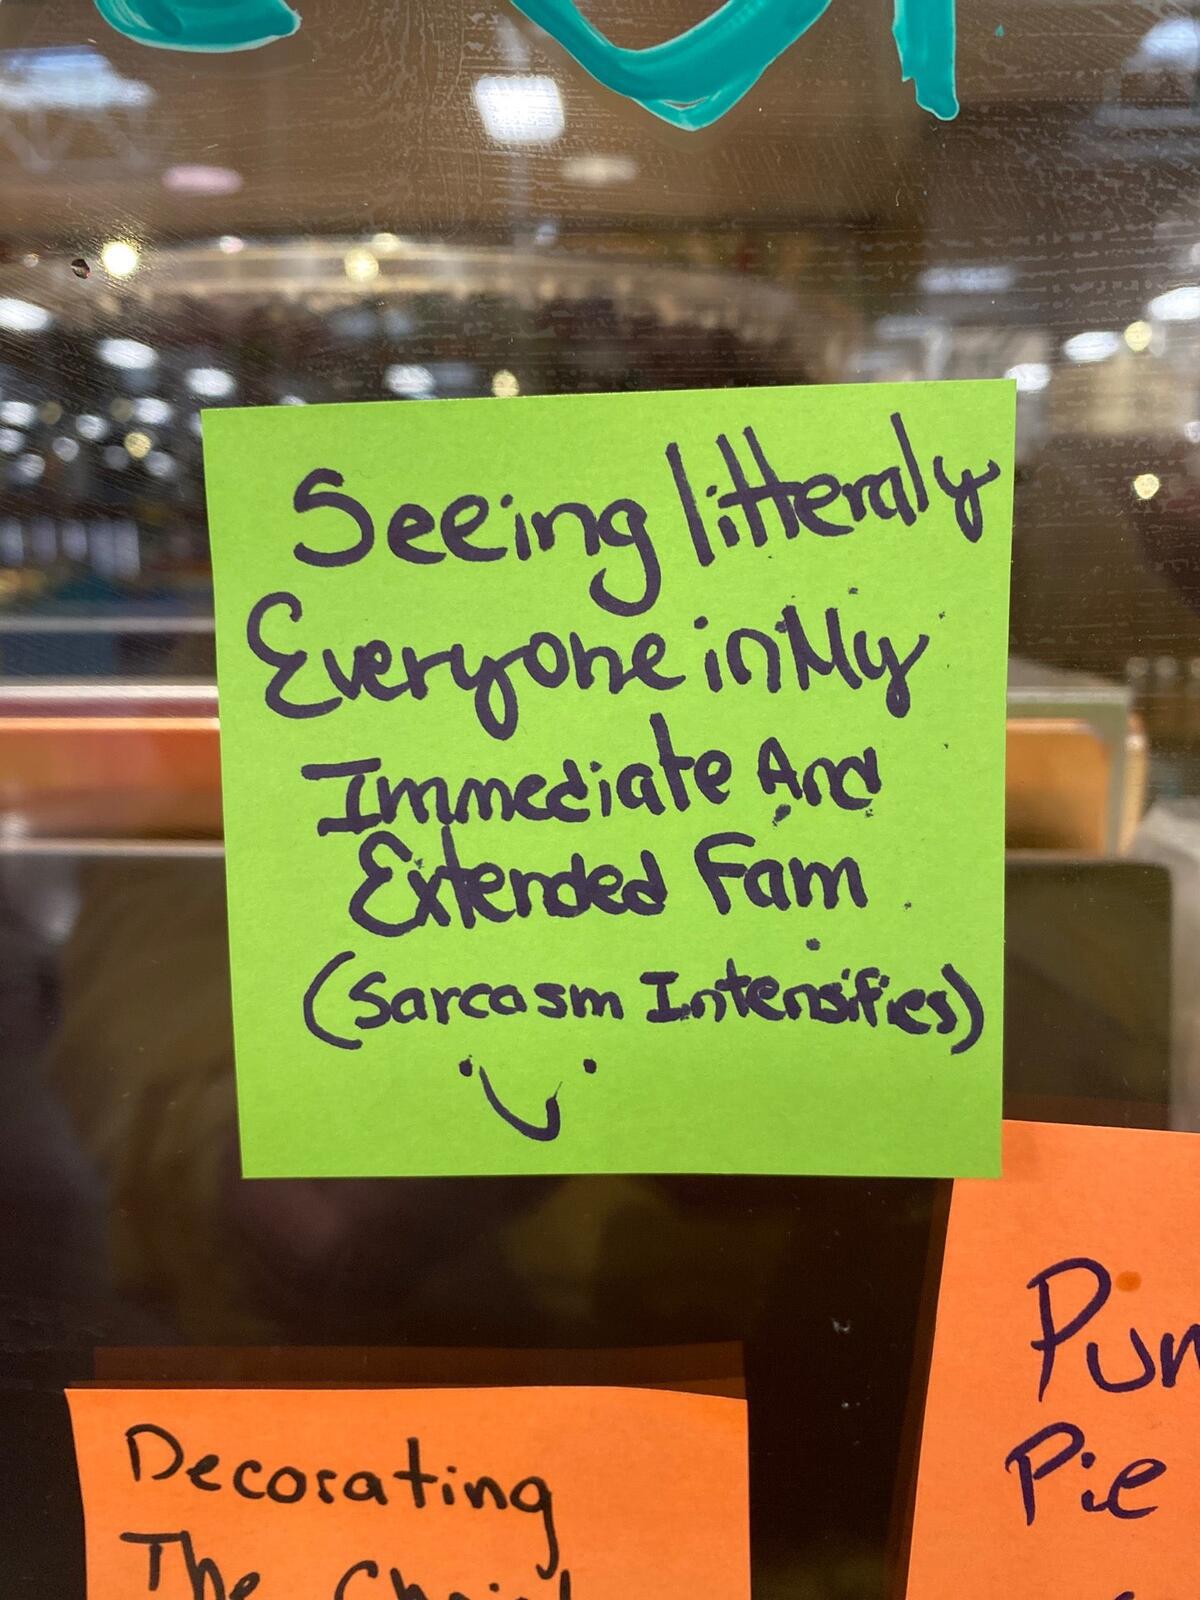 Seeing litteraly
Everyone in My
Immediate And
Extended Fam
(Sarcasm Intensifies)
Decorating
The
Pie